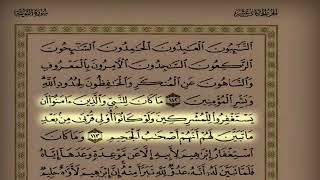 الجزء الحادي عشر سورة التوبة
التَّٰٓئِبُونَ ٱلْعَٰبِدُونَ ٱلْحَٰمِدُونَ ٱلسَّٰٓئِحُونَ
ٱلرَّٰكِعُونَ ٱلسَّٰجِدُونَ ٱلْءَامِرُونَ بِٱلْمَعْرُوفِ
وَٱلنَّاهُونَ عَنِ ٱلْمُنكَرِ وَٱلْحَٰفِظُونَ لِحُدُودِ ٱللَّهِ
وَبَشِّرِ ٱلْمُؤْمِنِينَ ١١٢ مَا كَانَ لِلنَّبِىِّ وَٱلَّذِينَ ءَامَنُوٓا۟ أَن
يَسْتَغْفِرُوا۟ لِلْمُشْرِكِينَ وَلَوْ كَانُوٓا۟ أُو۟لِى قُرْبَىٰ مِنۢ بَعْدِ
مَا تَبَيَّنَ لَهُمْ أَنَّهُمْ أَصْحَٰبُ ٱلْجَحِيمِ ١١٣ وَمَا كَانَ
ٱسْتِغْفَارُ إِبْرَٰهِيمَ لِأَبِيهِ إِلَّا عَن مَّوْعِدَةٍ وَعَدَهَآ إِيَّاهُ
فَلَمَّا تَبَيَّنَ لَهُۥٓ أَنَّهُۥ عَدُوٌّ لِّلَّهِ تَبَرَّأَ مِنْهُ إِنَّ إِبْرَٰهِيمَ لَأَوَّٰهٌ حَلِيمٌ